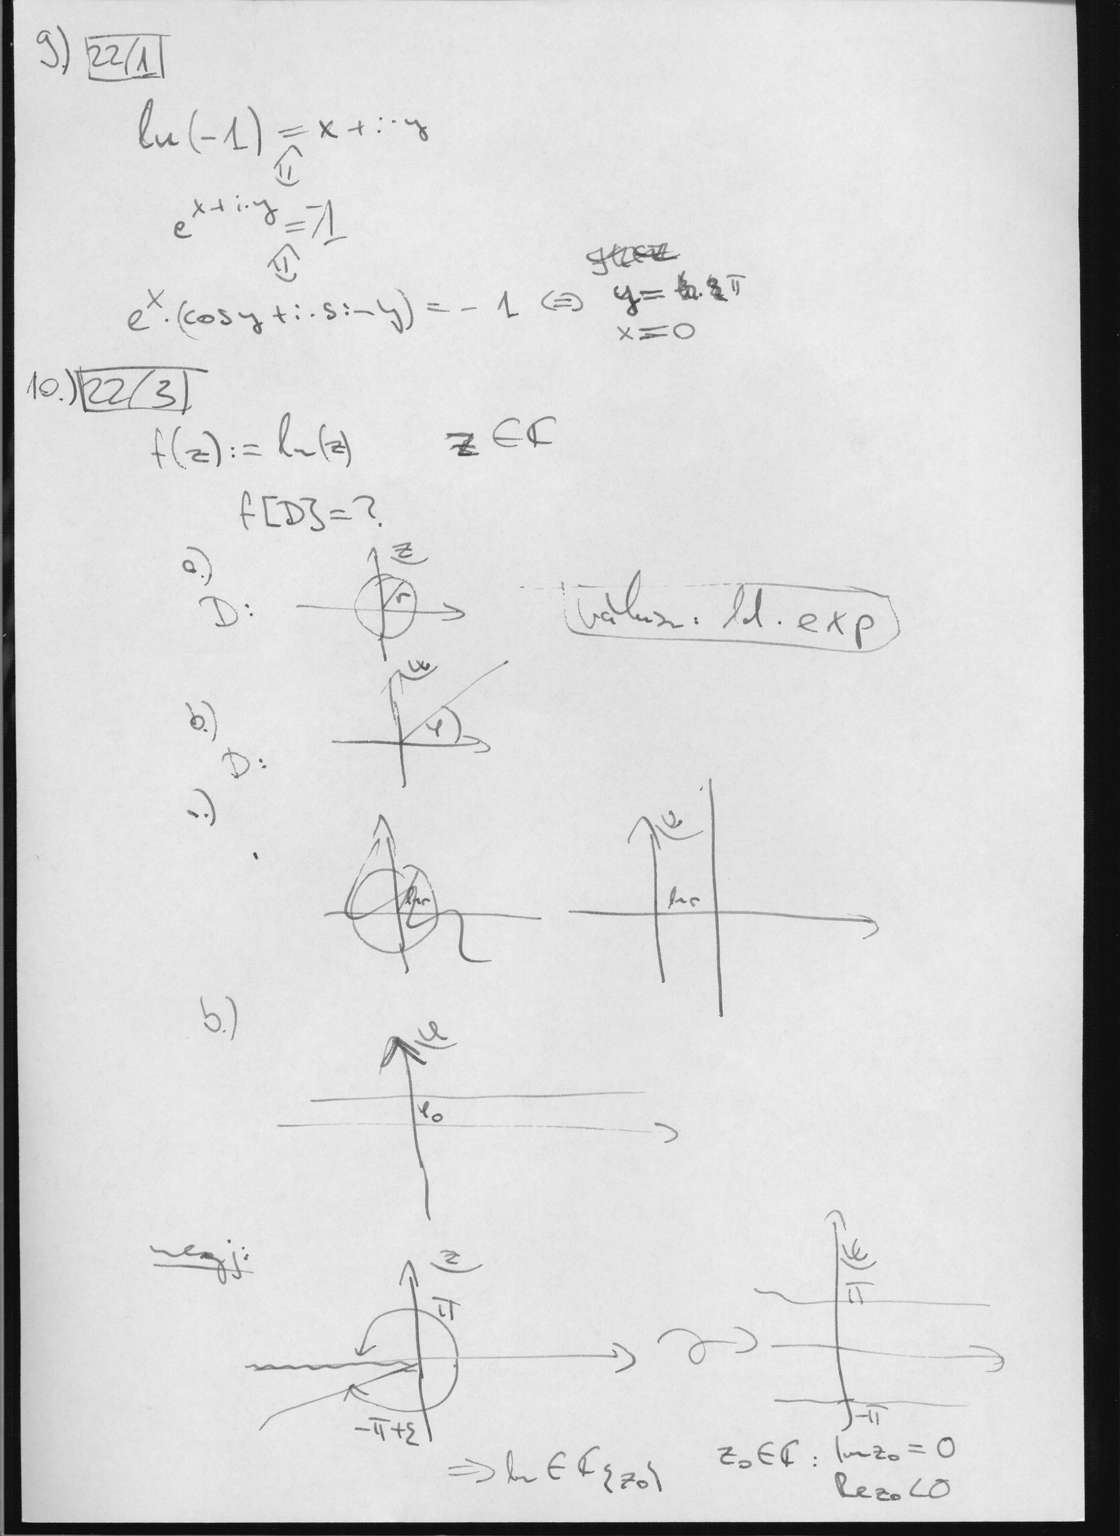 9.) 22/1
ln(-1) = x+i·y
⇕
e^{x+i·y} = -1
⇕
e^x·(cos y+i·sin y) = -1 ⇔ y = π
x = 0
10.) 22/3
f(z) := ln(z) z ∈ ℂ
f[D] = ?
a.) z
D: r
válasz: ld. exp
b.) w
D: φ
a.)
ln r w ln r
b.)
w
φ₀
megj:
z w
π π
-π+ε -π
⇒ ln ∈ ℂ{z₀} z₀ ∈ ℂ : Im z₀ = 0
Re z₀ < 0